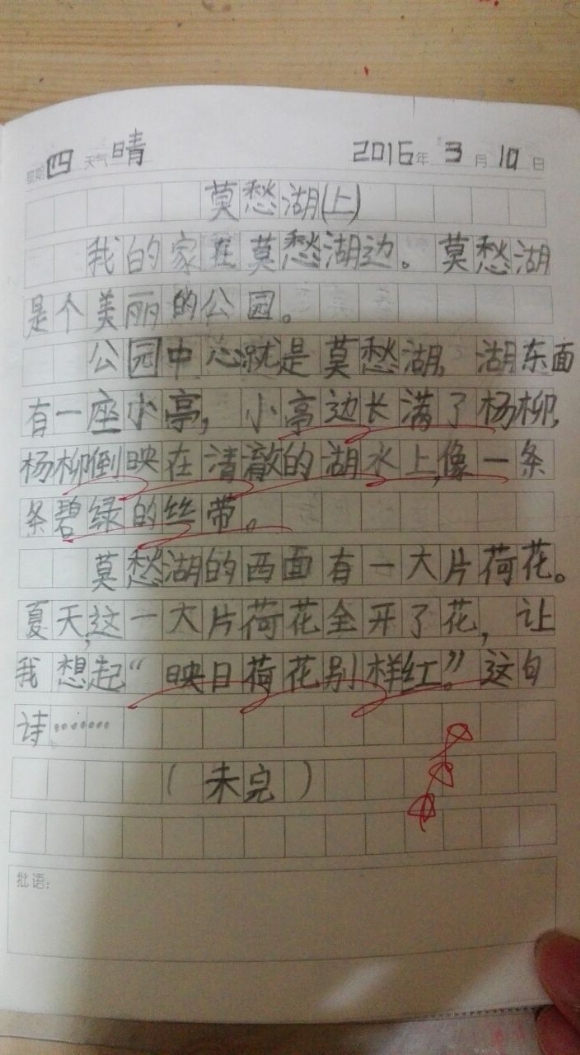 星期四 天气晴 2016年3月10日
莫愁湖(上)
我的家在莫愁湖边。莫愁湖
是个美丽的公园。
公园中心就是莫愁湖,湖东面
有一座小亭,小亭边长满了杨柳,
杨柳倒映在清澈的湖水上,像一条
条碧绿的丝带。
莫愁湖的西面有一大片荷花。
夏天,这一大片荷花全开了花,让
我想起“映日荷花别样红。”这句
诗……
(未完)
批语: